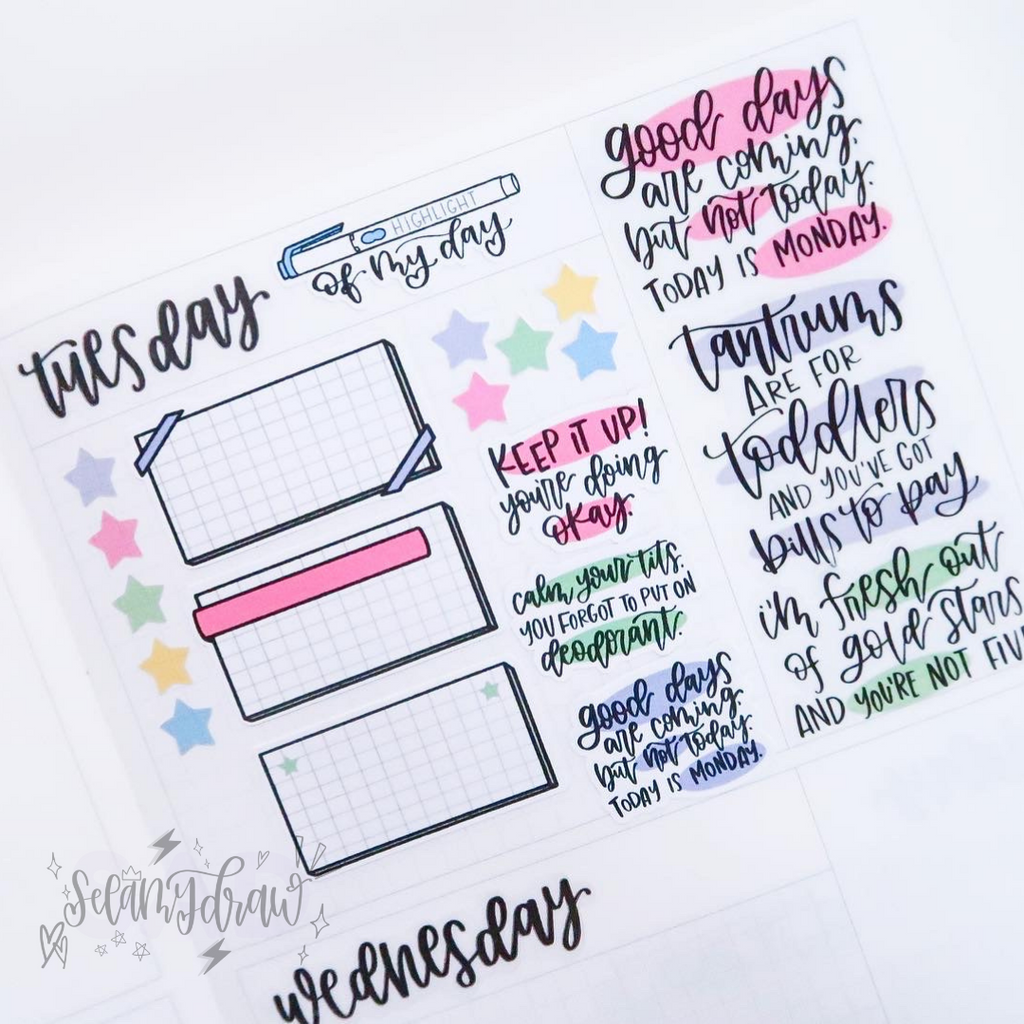 tuesday
HIGHLIGHT
of my day
KEEP IT UP!
you're doing
okay.
calm your tits.
YOU FORGOT TO PUT ON
deodorant.
good days
are coming.
but not today.
TODAY IS MONDAY.
good days
are coming.
but not today.
TODAY IS MONDAY.
tantrums
ARE FOR
toddlers
AND YOU'VE GOT
bills to pay
i'm fresh out
of gold stars
AND YOU'RE NOT
wednesday
selamydraw